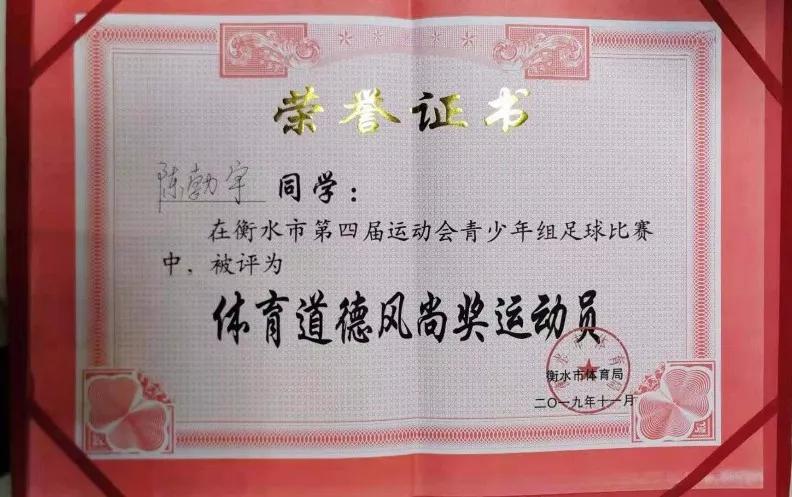 荣誉证书
陈勃宇 同学：
在衡水市第四届运动会青少年组足球比赛
中，被评为
体育道德风尚奖运动员
衡水市体育局
二〇一九年十一月